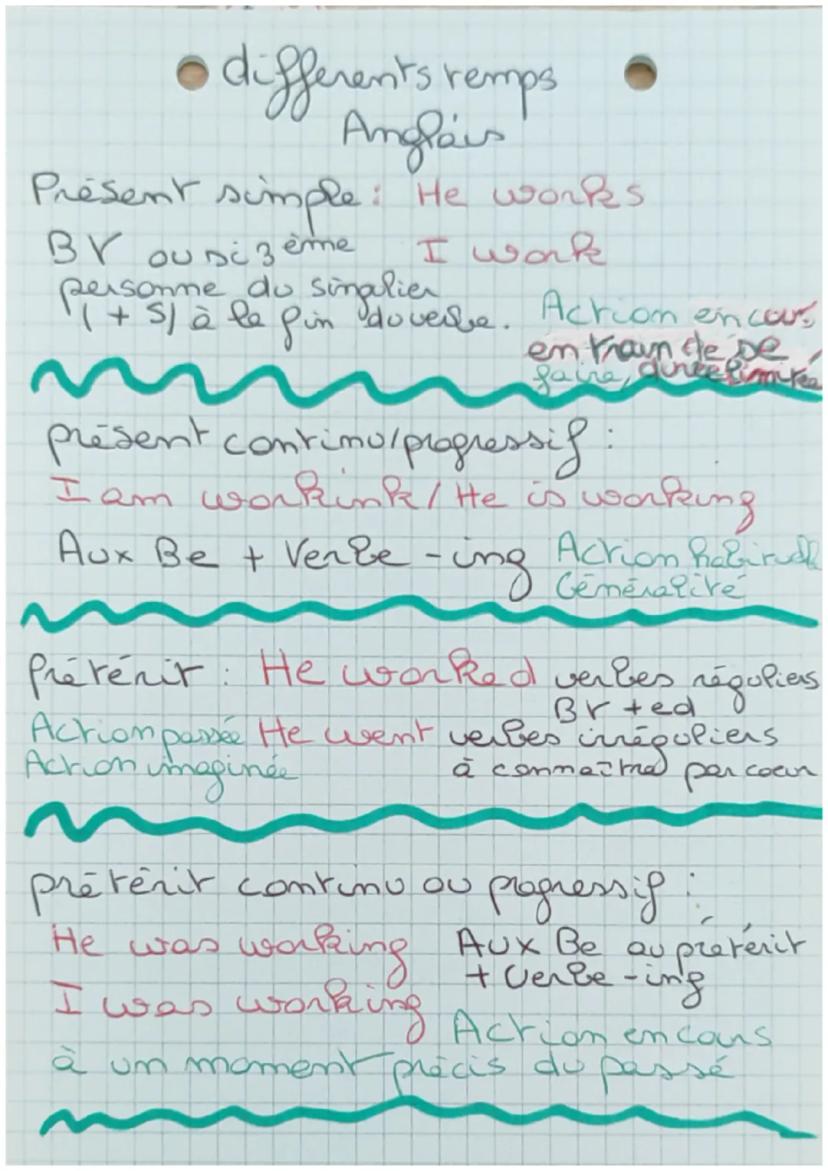 differents temps
Anglais
Présent simple : He works
BV ou si 3ème I work
personne du singulier
( + S) à la fin du verbe. Action en cours,
en train de se
faire, durée limitée
présent continu/progressif :
I am workink / He is working
Aux Be + Verbe -ing Action habituelle
Généralité
Prétérit : He worked verbes réguliers
BV + ed
Action passée He went verbes irréguliers
Action imaginée à connaître par coeur
prétérit continu ou progressif :
He was working Aux Be au prétérit
+ Verbe -ing
I was working
Action en cours
à un moment précis du passé